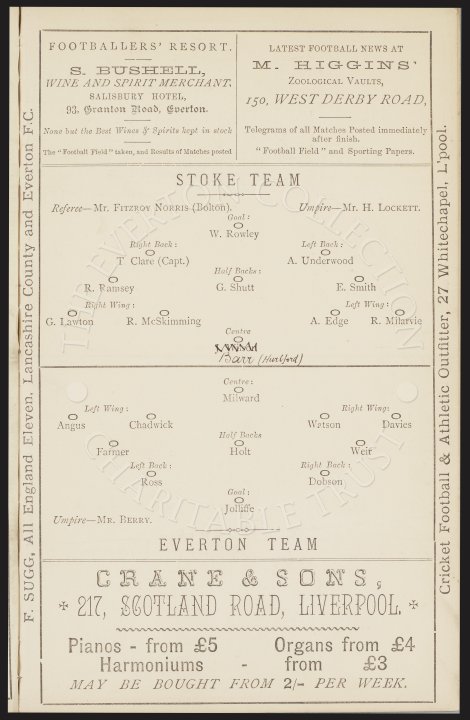 FOOTBALLERS' RESORT.
S. BUSHELL,
WINE AND SPIRIT MERCHANT,
SALISBURY HOTEL,
93, Granton Road, Everton.
None but the Best Wines & Spirits kept in stock
The "Football Field" taken, and Results of Matches posted
LATEST FOOTBALL NEWS AT
M. HIGGINS'
ZOOLOGICAL VAULTS,
150, WEST DERBY ROAD,
Telegrams of all Matches Posted immediately
after finish.
"Football Field" and Sporting Papers.
F. SUGG, All England Eleven, Lancashire County and Everton F.C.
STOKE TEAM
Referee—MR. FITZROY NORRIS (Bolton). Umpire—MR. H. LOCKETT.
Goal:
W. Rowley
Right Back: Left Back:
T. Clare (Capt.) A. Underwood
Half Backs:
R. Ramsey G. Shutt E. Smith
Right Wing: Left Wing:
G. Lawton R. McSkimming A. Edge R. Milarvie
Centre
Barr (Hurlford)
Centre:
Milward
Left Wing: Right Wing:
Angus Chadwick Watson Davies
Half Backs
Farmer Holt Weir
Left Back: Right Back:
Ross Dobson
Goal:
Jolliffe
Umpire—MR. BERRY.
EVERTON TEAM
Cricket Football & Athletic Outfitter, 27 Whitechapel, L'pool.
CRANE & SONS,
217, SCOTLAND ROAD, LIVERPOOL.
Pianos - from £5 Organs from £4
Harmoniums - from £3
MAY BE BOUGHT FROM 2/- PER WEEK.
THE EVERTON COLLECTION
CHARITABLE TRUST